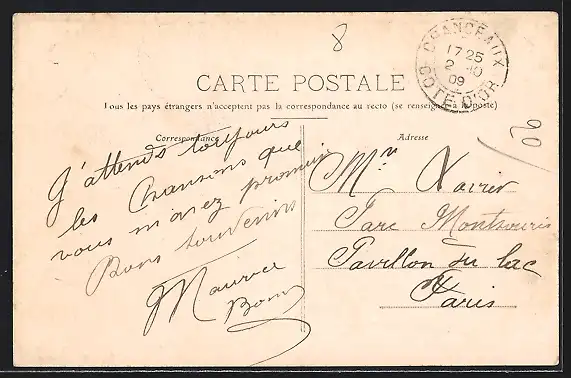 8
CHANCEAUX
17 25
2 -10
09
COTE-D'OR
CARTE POSTALE
Tous les pays étrangers n'acceptent pas la correspondance au recto (se renseigner à la poste)
Correspondance
Adresse
J'attends toujours
les Chansons que
vous m'avez promises
Bons souvenirs
Maurice
Mr Xavier
Parc Montsouris
Pavillon du lac
Paris